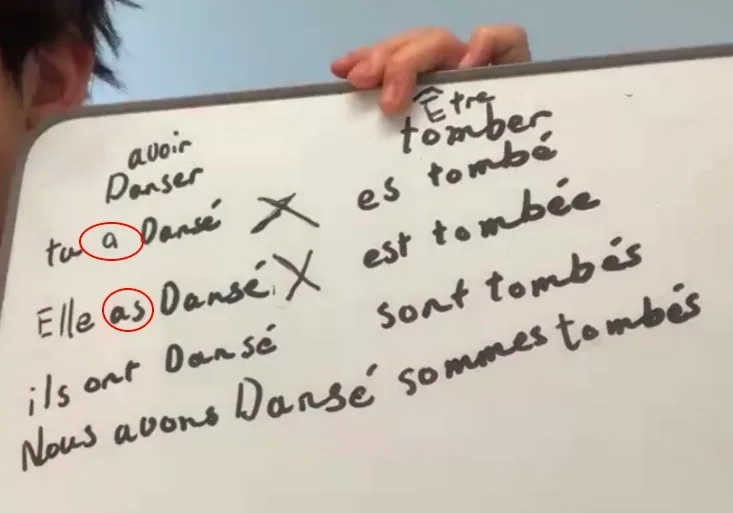 avoir Être
Danser tomber
tu a Dansé X es tombé
Elle as Dansé. X est tombée
ils ont Dansé sont tombés
Nous avons Dansé sommes tombés